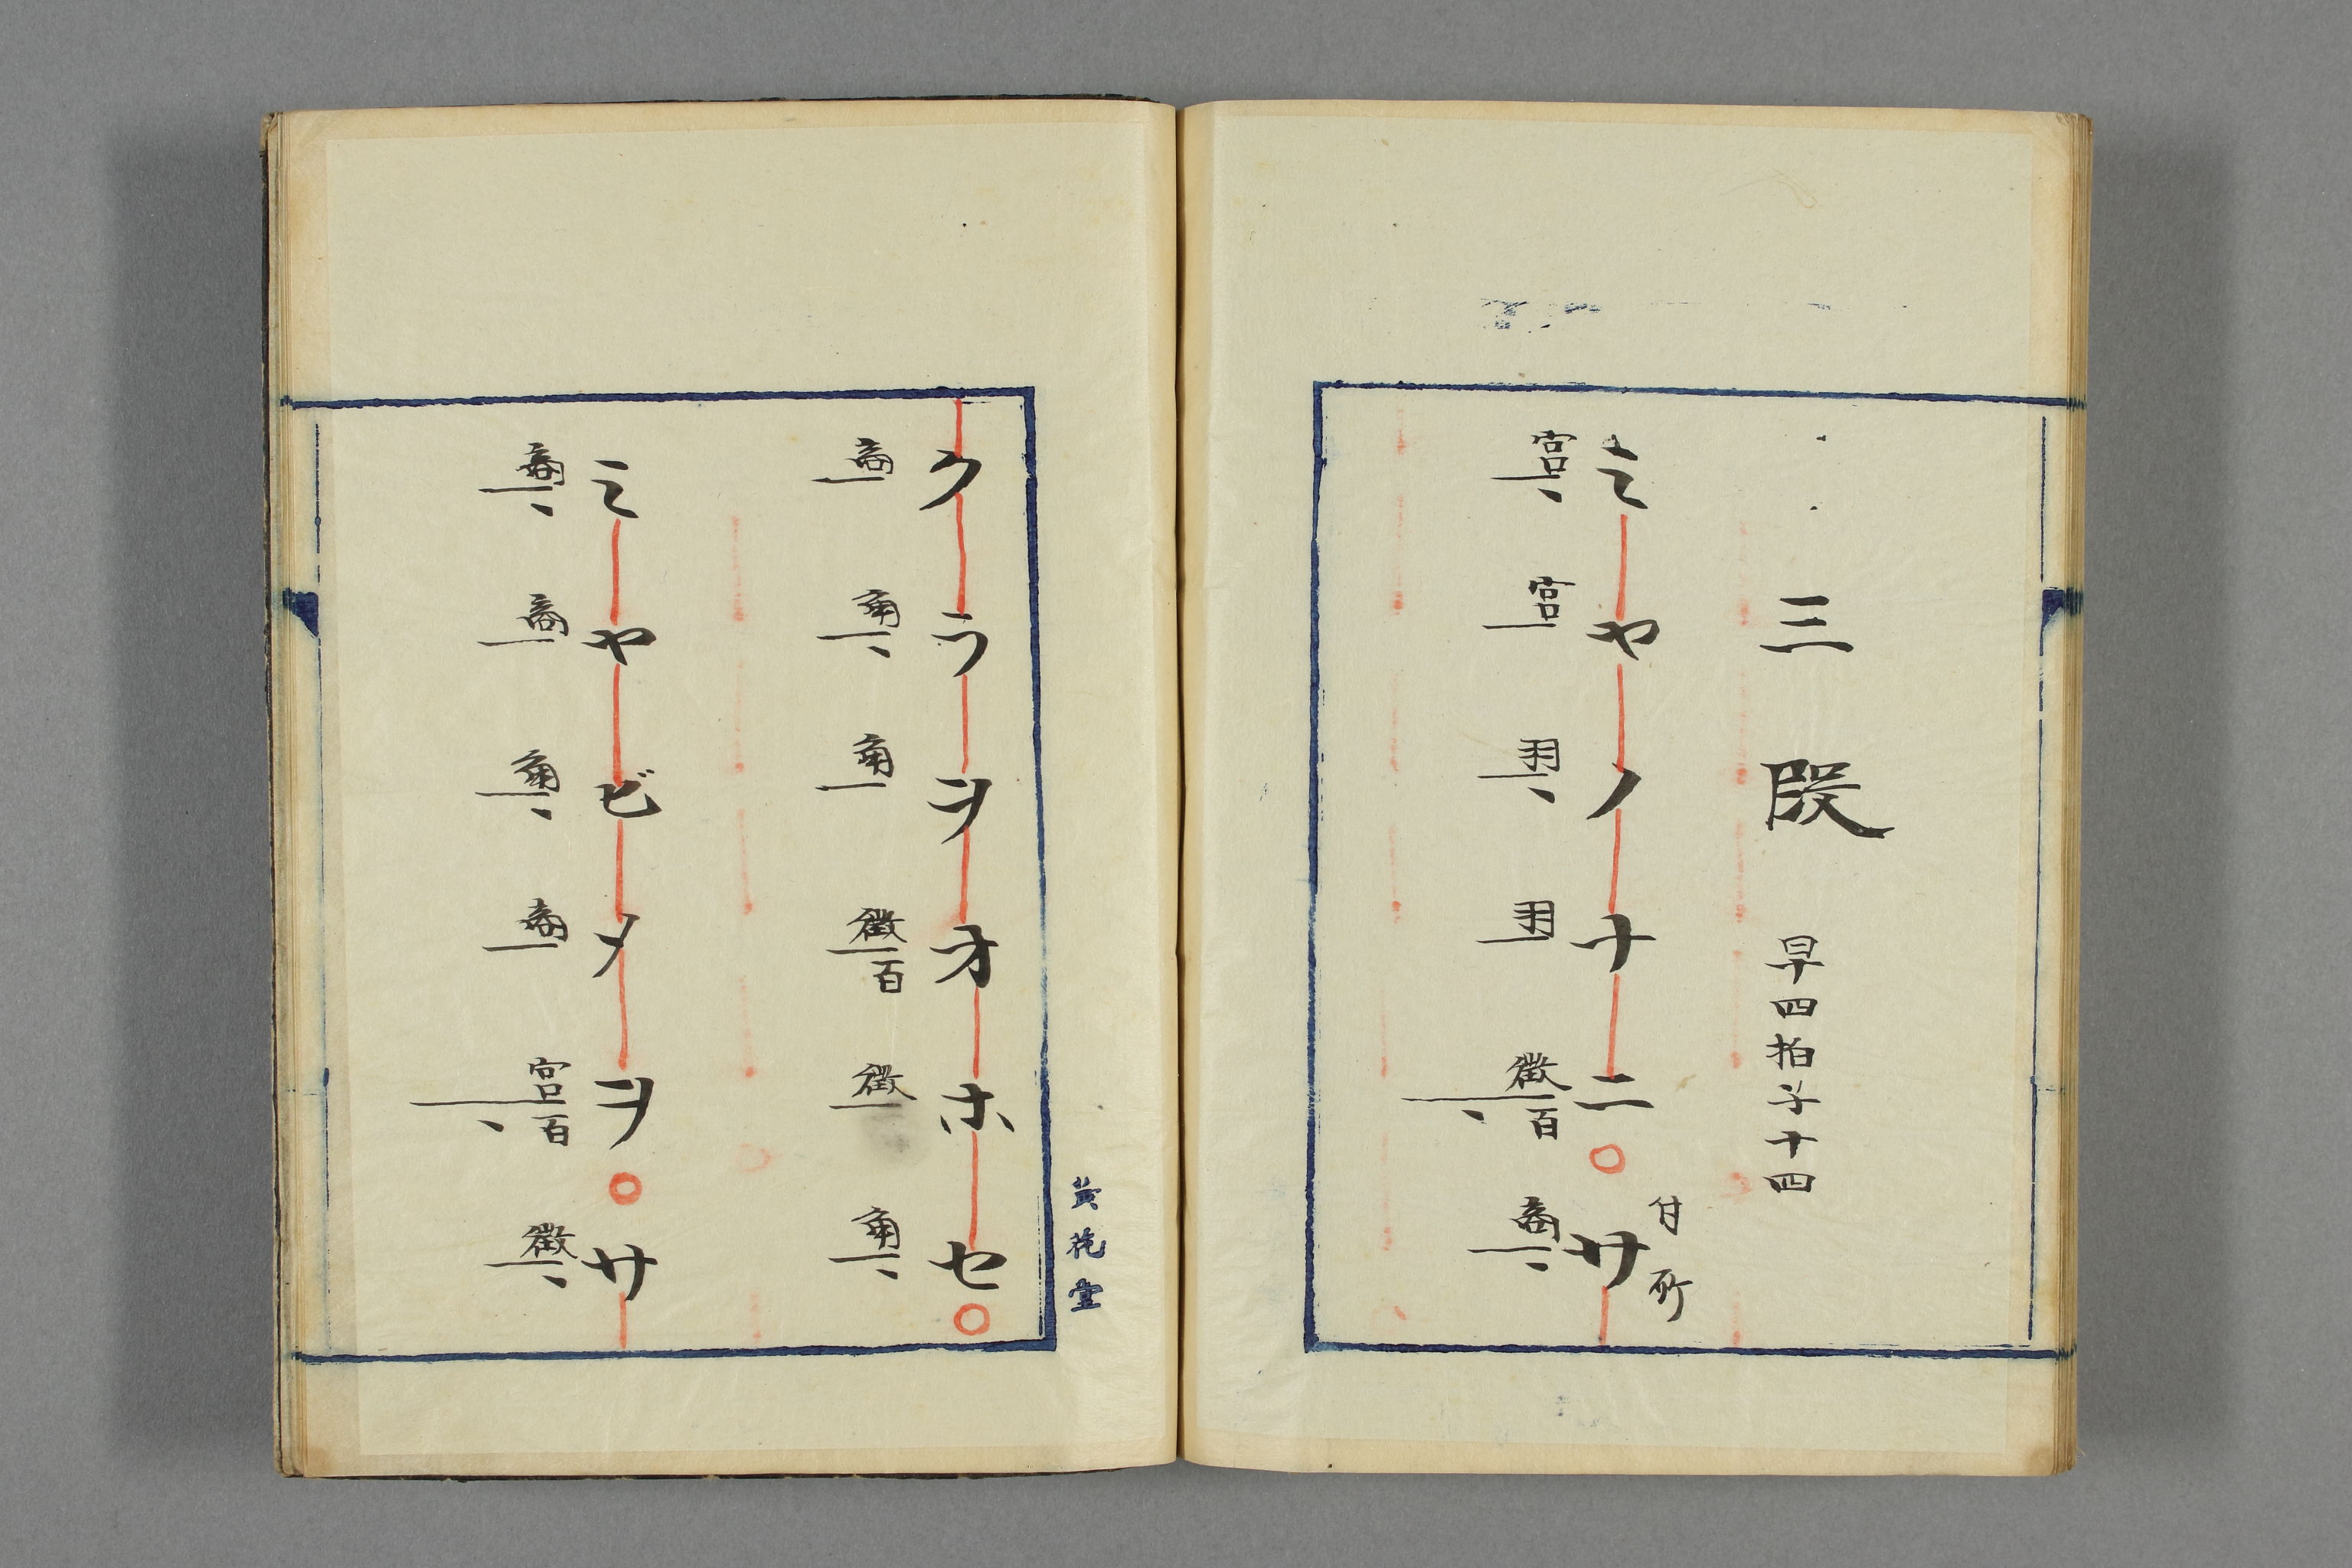 三段 早四拍子十四
ミヤノナニ○サ
付所
宮 宮 羽 羽 徵百 商
クラヲオホセ○
商 角 角 徵百 徵 角
ミヤビメヲ○サ
商 商 角 商 宮百 徵
黄花堂